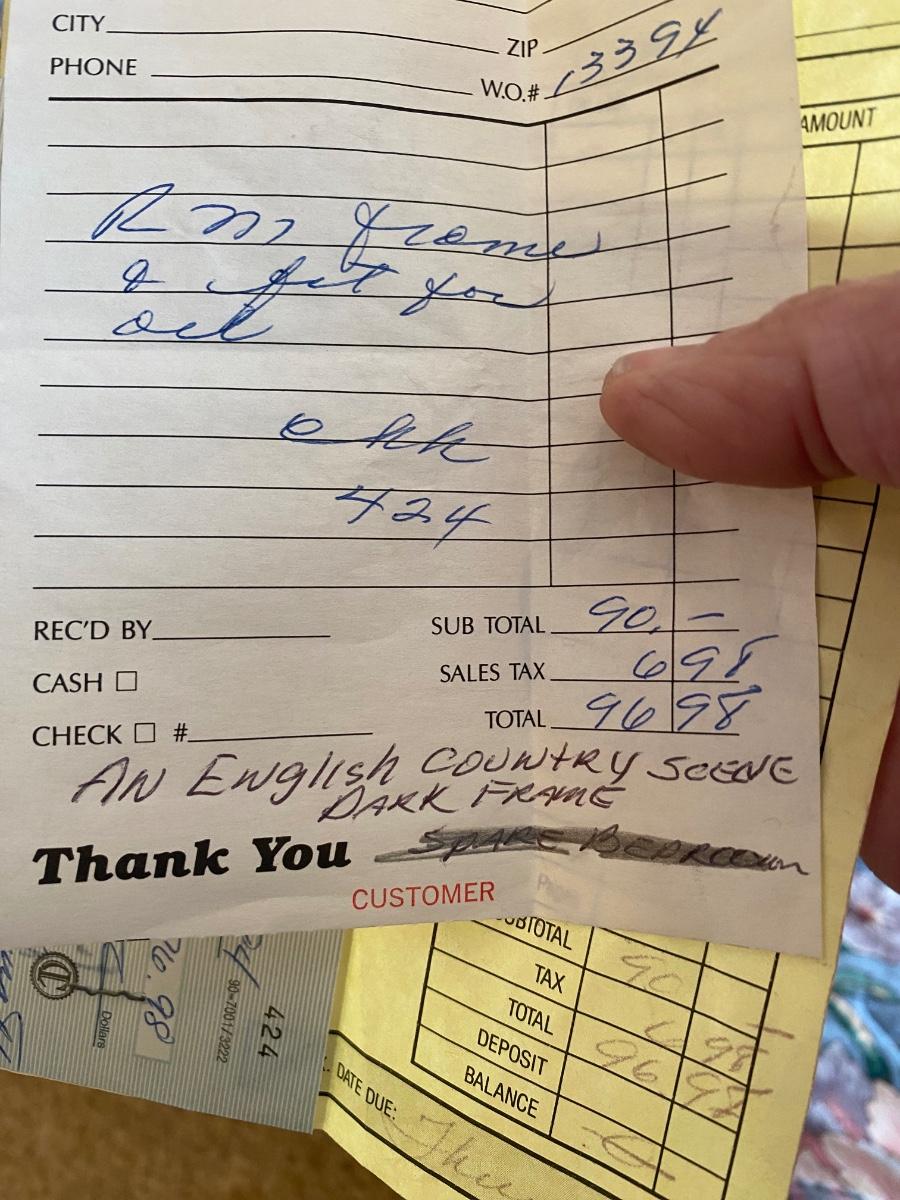 CITY
ZIP
PHONE
W.O.# 13394
AMOUNT
frame
& for
424
REC'D BY
SUB TOTAL 90.-
CASH
SALES TAX 6 98
CHECK #
TOTAL 96 98
AN English COUNTRY SCENE
DARK FRAME
Thank You SPARE BEDROOM
CUSTOMER
SUBTOTAL 90
TAX 6 98
TOTAL 96 98
DEPOSIT
BALANCE -0-
DATE DUE:
96.98
Dollars
90-7001/3222
424